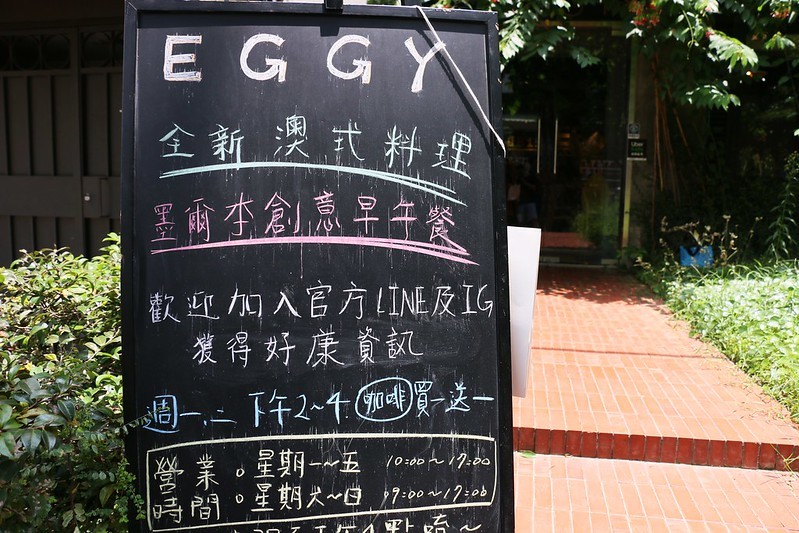 EGGY
全新澳式料理
墨爾本創意早午餐
歡迎加入官方LINE及IG
獲得好康資訊
週一、二 下午2~4 咖啡買一送一
營業時間
星期一~五 10:00~17:00
星期六~日 09:00~17:00